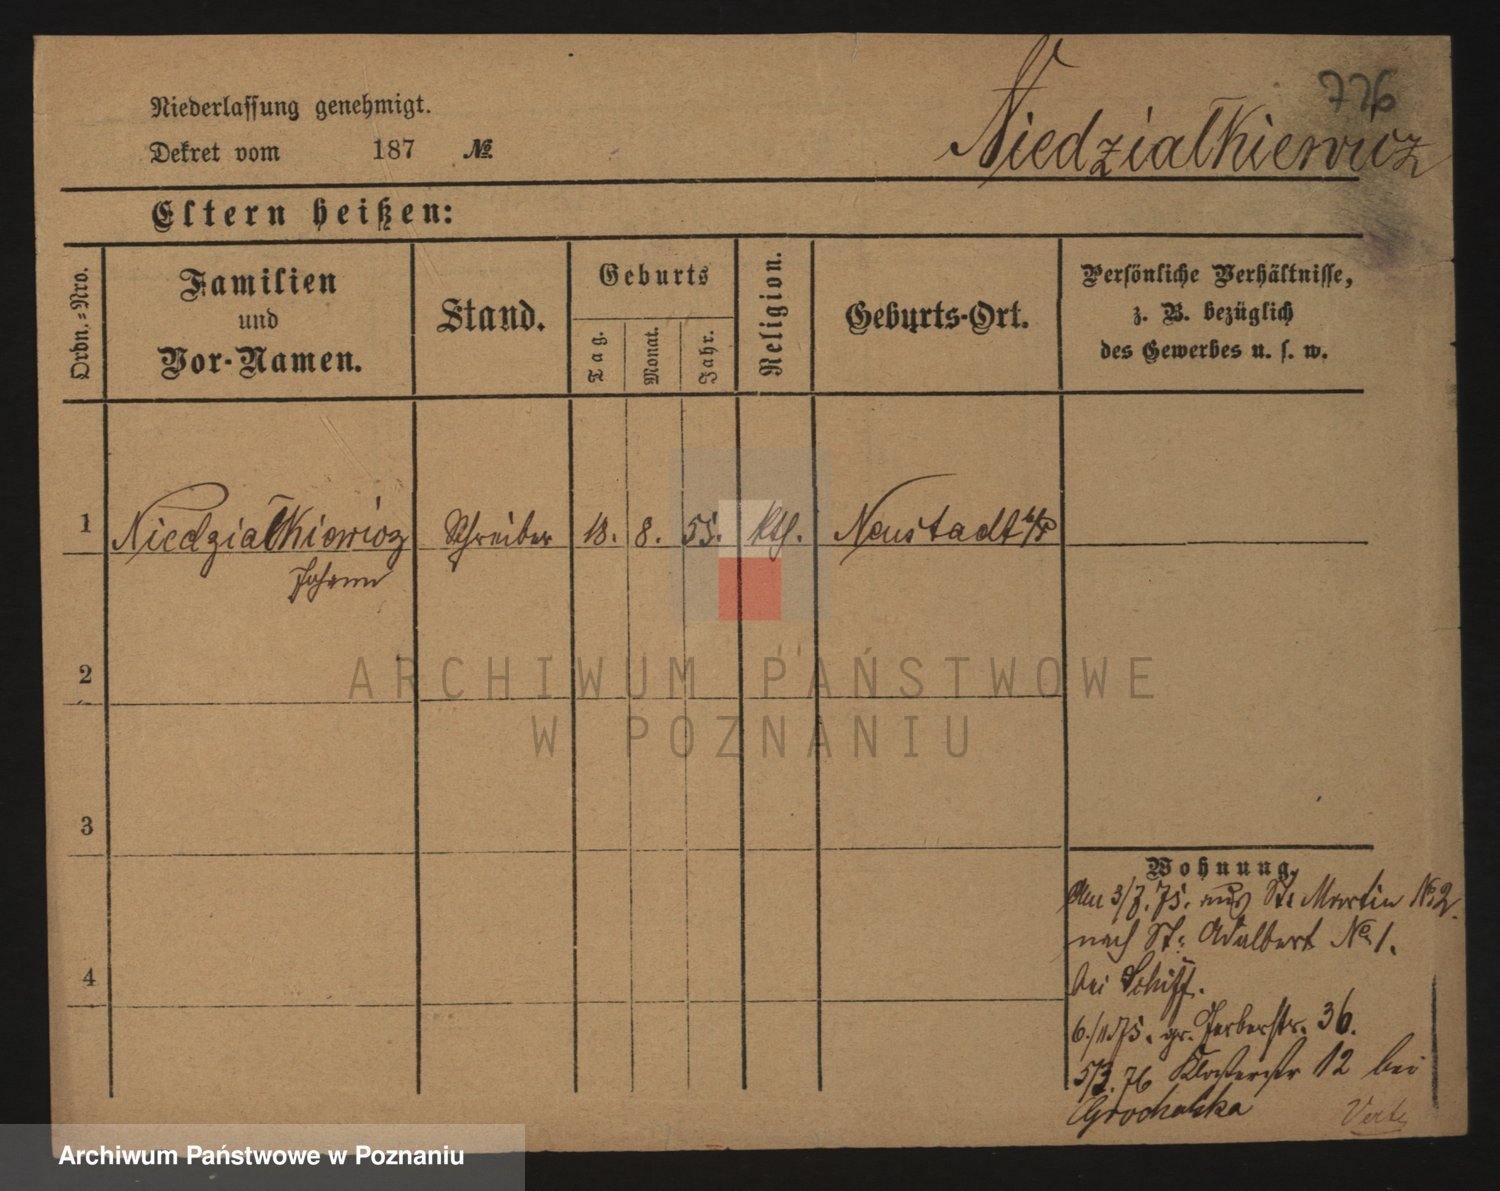 776
Niedziałkiewicz
Niederlassung genehmigt.
Dekret vom 187 №
Eltern heißen:
Ordn.-Nro.
Familien
und
Vor-Namen.
Stand.
Geburts
Tag.
Monat.
Jahr.
Religion.
Geburts-Ort.
Persönliche Verhältnisse,
z. B. bezüglich
des Gewerbes u. s. w.
1 Niedziałkiewicz Schreiber 18. 8. 55. kth. Neustadt b/P
Johann
2
3
4
Wohnung.
Am 3/7. 75. aus St. Martin No 2.
nach St. Adalbert No 1.
bei Schiff.
6./11 75. gr. Gerberstr. 36.
5/3. 76 Klosterstr 12 bei
Grochalska
Verte
ARCHIWUM PAŃSTWOWE
W POZNANIU
Archiwum Państwowe w Poznaniu